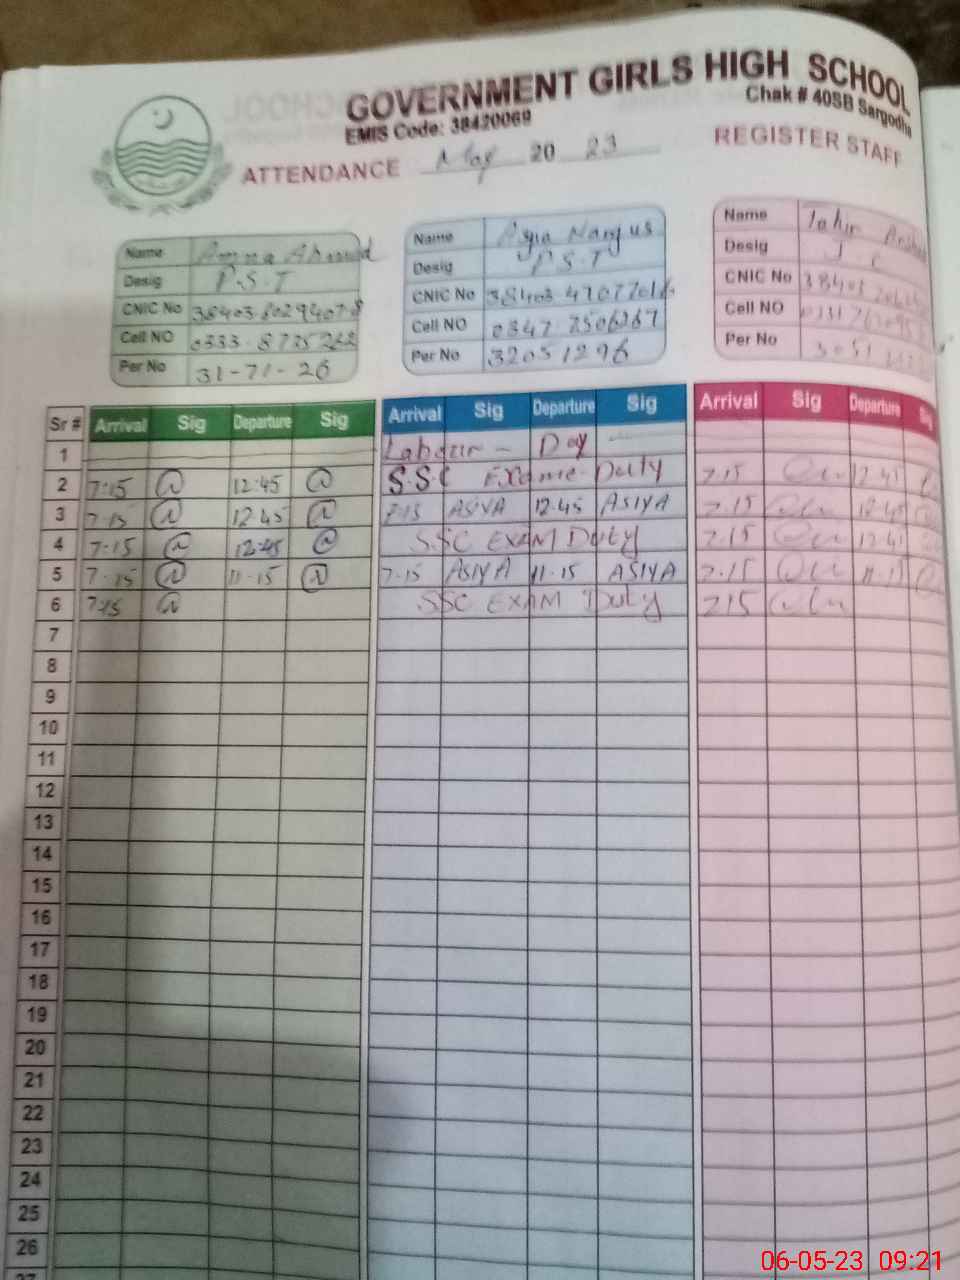 GOVERNMENT GIRLS HIGH SCHOOL
EMIS Code: 38420069
Chak # 40SB Sargodha
ATTENDANCE May 20 23 REGISTER STAFF
Name Amna Ahmad
Desig P.S.T
CNIC No
Cell NO
Per No 31-71-26
Name Asia Nargus
Desig P S T
CNIC No
Cell NO 0347 7506267
Per No 32051296
Name Tahir
Desig
CNIC No
Cell NO
Per No
Sr # Arrival Sig Departure Sig Arrival Sig Departure Sig Arrival Sig Departure
1 Labour - Day
2 7:15 12:45 S.S.C Exame Duty 7.15 12:45
3 7:15 12:45 7:15 ASIYA 12:45 ASIYA 7.15 12:45
4 7-15 12:45 S.SC EXAM Duty 7.15 12:45
5 7-15 11-15 7-15 ASIYA 11.15 ASIYA 7.15 11.15
6 7:15 SSC EXAM Duty 7:15
7
8
9
10
11
12
13
14
15
16
17
18
19
20
21
22
23
24
25
26
27
06-05-23 09:21